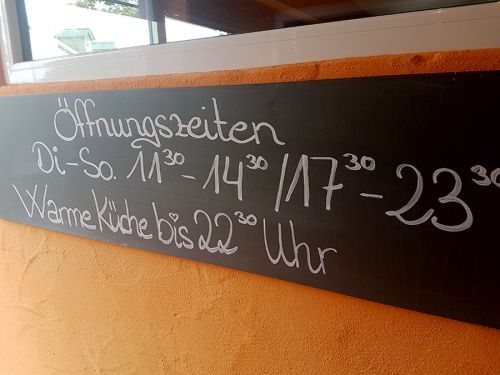 Öffnungszeiten
Di-So. 11³⁰-14³⁰/17³⁰-23³⁰
Warme Küche bis 22³⁰ Uhr